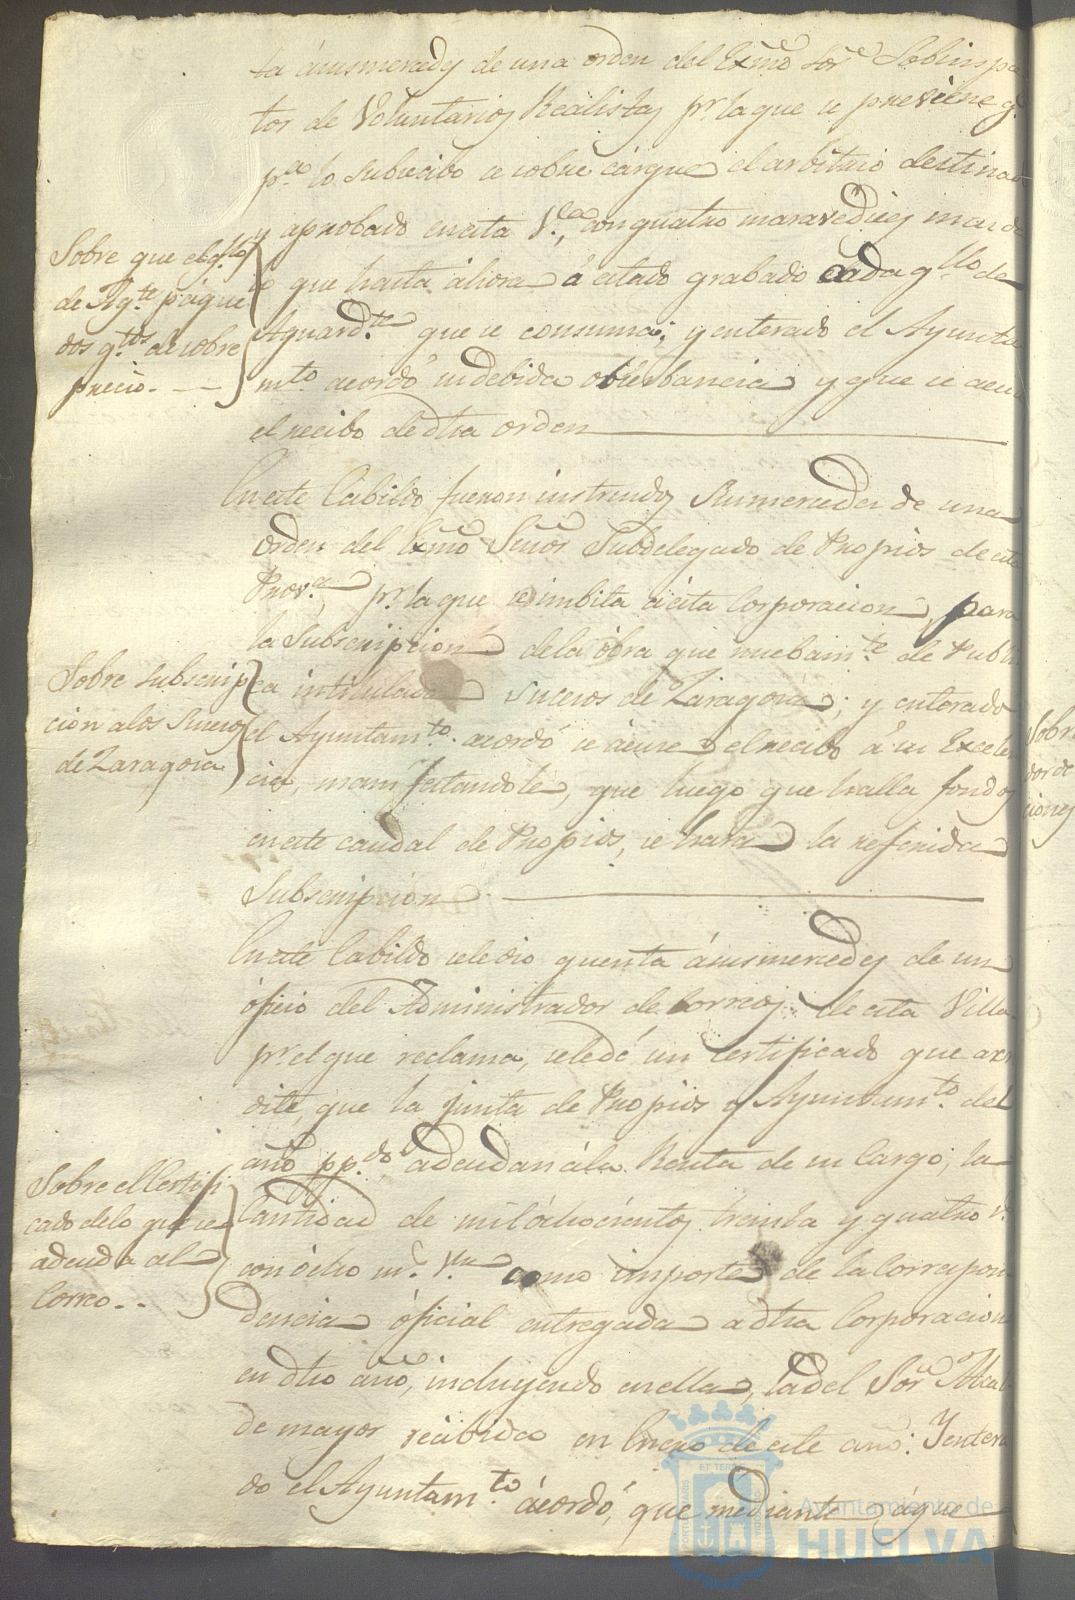 ta á sus mercedes de una orden del Exmo Sor Sobinspe
tor de Voluntarios Realistas pr. la que se previene q.e
p.a lo subcecibo se sobre cargue el arbitrio destinado
y aprobado en esta V.a, con quatro maravedises mas de
que hasta áhora á estado grabado cada q.llo de
Aguard.te que se consuma; y enterado el Ayunta
m.to acordó su debida obserbancia y que se acuse
el recibo de dha orden
Sobre que el q.llo
de Ag.te pague
dos q.tos de sobre
precio.
En este Cabildo fueron instruidos Sus mercedes de una
Orden del Exmo Señor Subdelegado de Propios de esta
Prov.a, pr. la que se imbita á esta Corporacion, para
la Subscripcion de la óbra que nuebam.te se Publi
ca intitulada Sucesos de Zaragoza; y enterado
el Ayuntam.to acordó se ácuse el recibo á su Excelen
cia, manifestandole, que luego que halla fondos
en este caudal de Propios, se hará la referida
Subscripcion
Sobre subscrip
cion a los Sucesos
de Zaragoza
En este Cabildo se le dio quenta á sus mercedes de un
óficio del Administrador de Correos de esta Villa
pr. el que reclama, se le dé un Certificado que acre
dite, que la Junta de Propios y Ayuntam.to del
año pp.do adeudan á la Renta de su Cargo, la
Cantidad de mil óchocientos treinta y quatro r.s
con ócho m.s V.n como importe de la Correspon
dencia óficial entregada a dha Corporacion
en dho año, incluyendo en ella, la del Sor Alcal
de mayor recibida en Enero de este año: Y entera
do el Ayuntam.to ácordó, que mediante á que
Sobre el Certifi
cado de lo que se
adeuda al
Correo.
Sobre
ciones
Ayuntamiento de
HUELVA